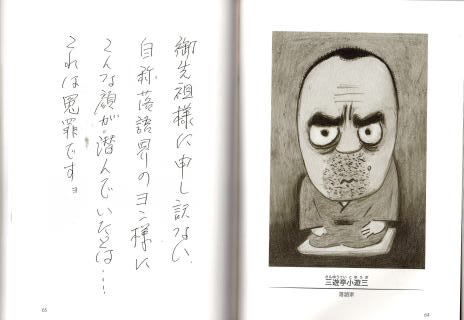 御先祖様に申し訳ない
自称落語界のヨン様に
こんな顔が潜んでいたとは…
これは冤罪ですョ
65
さんゆうていこゆうざ
三遊亭小遊三
落語家
64